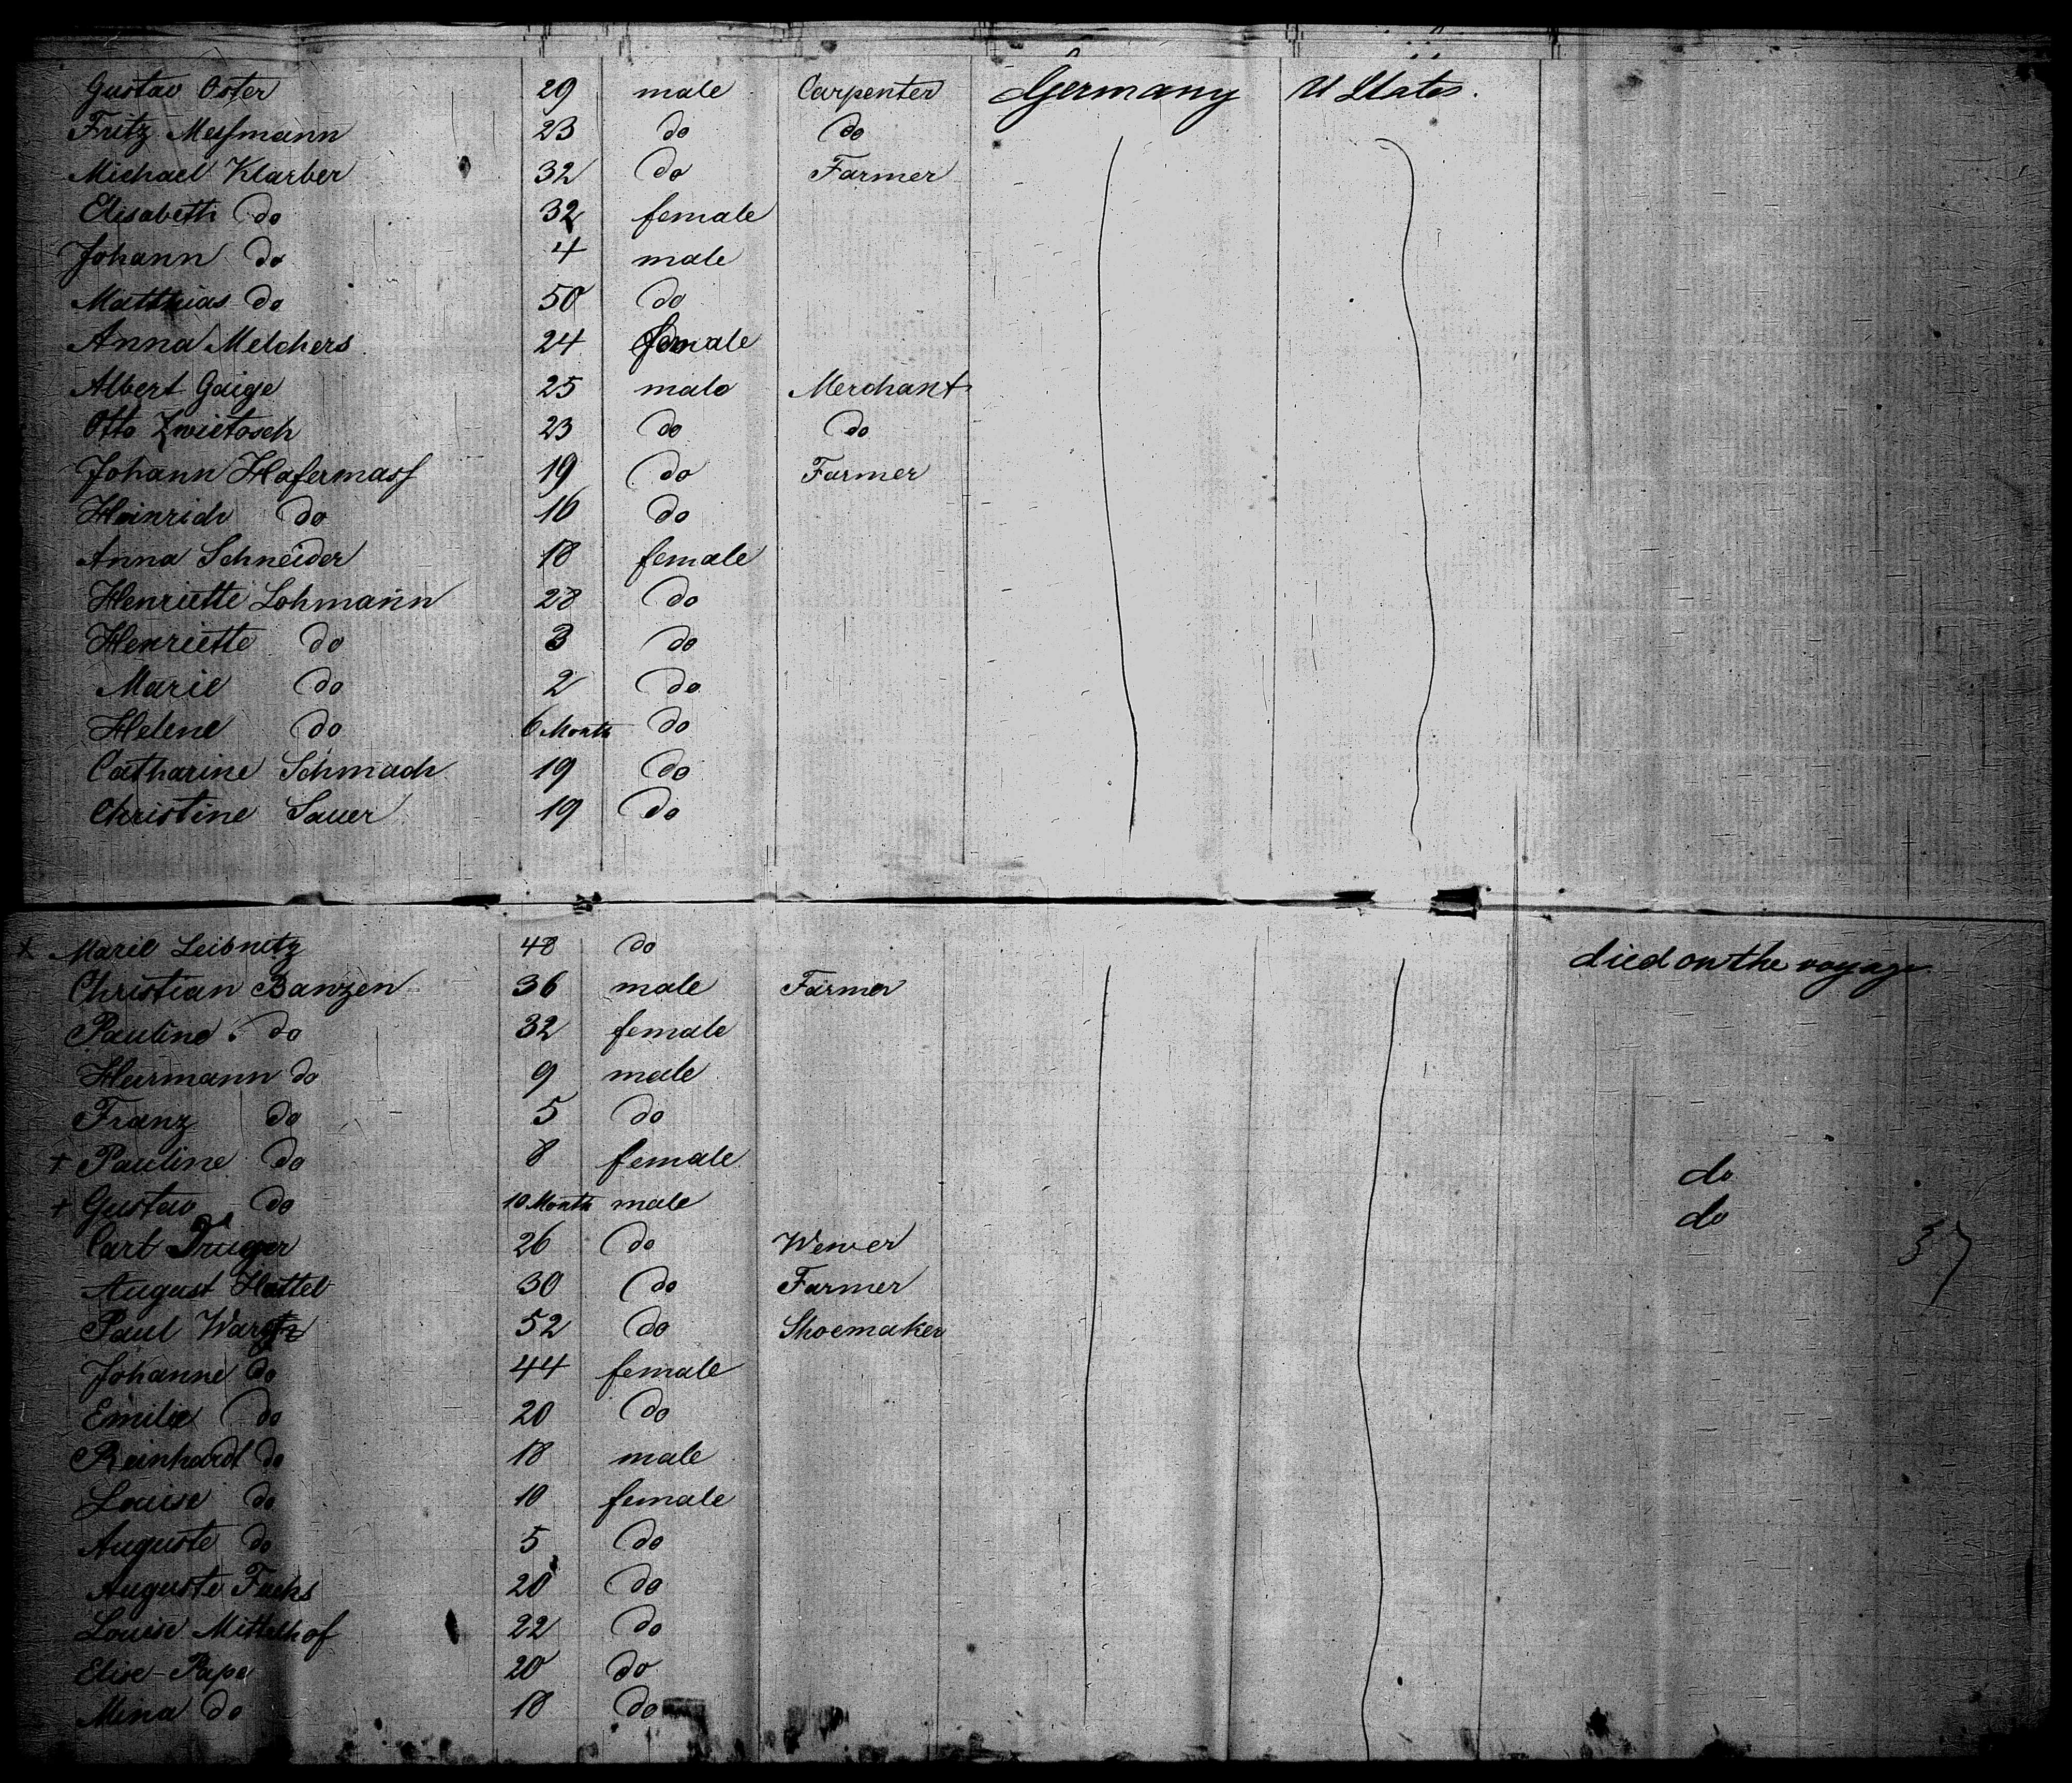 Gustav Oster 29 male Carpenter Germany U States.
Fritz Meßmann 23 do do
Michael Klarber 32 do Farmer
Elisabeth do 32 female
Johann do 4 male
Matthias do 50 do
Anna Melchers 24 female
Albert Gaige 25 male Merchant
Otto Zwietosch 23 do do
Johann Hafermaß 19 do Farmer
Heinrich do 16 do
Anna Schneider 18 female
Henriette Lohmann 28 do
Henriette do 3 do
Marie do 2 do
Helene do 6 Month do
Catharine Schmach 19 do
Christine Sauer 19 do
x Marie Leibnitz 48 do died on the voyage
Christian Banzen 36 male Farmer
Pauline do 32 female
Herrmann do 9 male
Franz do 5 do
+ Pauline do 8 female do
+ Gustav do 10 Month male do
Carl 26 do Wewer 37
August Hattel 30 do Farmer
Paul 52 do Shoemaker
Johanne do 44 female
Emilie do 20 do
Reinhardt do 18 male
Louise do 10 female
Auguste do 5 do
Auguste Fuchs 20 do
Louise Mittelhof 22 do
Elise Pape 20 do
Mina do 18 do